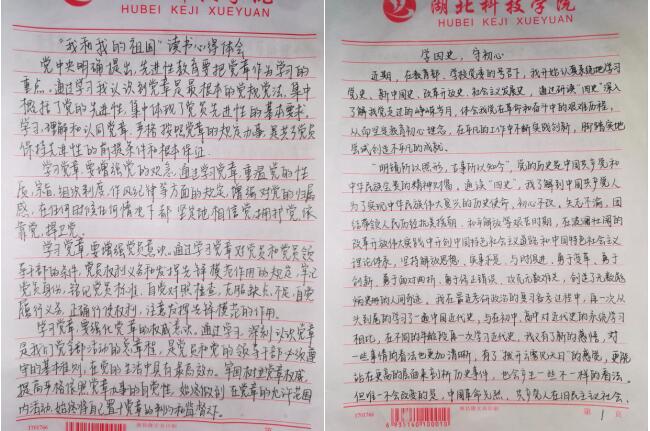 HUBEI KEJI XUEYUAN
“我和我的祖国”读书心得体会
党中央明确提出，先进性教育要把党章作为学习的
重点。通过学习我认识到党章是最根本的党规党法，集中
概括了党的先进性，集中体现了党员先进性的基本要求。
学习、理解和认同党章，严格按照党章的规定办事，是共产党员
保持先进性的前提条件和根本保证。
学习党章，要增强党的观念。通过学习党章，重温党的性
质、宗旨、组织制度、作风纪律等方面的规定，增强对党的归属
感，在任何时候任何情况下都坚定地相信党、拥护党、依
靠党、捍卫党。
学习党章，要增强党员意识。通过学习党章对党员和党员领
导干部的条件、党员权利义务和发挥先锋模范作用的规定，牢记
党员身份，铭记党员标准，自觉对照检查，克服缺点、不足，自觉
履行义务，正确行使权利，注意发挥先锋模范的作用。
学习党章，要强化党章的权威意识。通过学习，深刻认识党章
是我们党全部活动的总章程，是党员和党的领导干部必须遵
守的基本准则，在党的生活中具有最高效力。牢固树立党章权威，
提高严格依照党章办事的自觉性，始终做到在党章的允许范围
内活动，始终将自己置于党章的制约和监督下。
1701766
湖北科技学院
HUBEI KEJI XUEYUAN
学四史，守初心
近期，在教育部、学校党委的号召下，我开始认真系统地学习
党史、新中国史、改革开放史、社会主义发展史，通过研读“四史”深入
了解我党走过的峥嵘岁月，体会我党在革命和奋斗中的艰难历程，
从而坚定教育初心理念，在平凡的工作中断实践创新，脚踏实地
尝试创造不平凡的成就。
“明镜所以照形，古事所以知今”，党的历史是中国共产党和
中华民族宝贵的精神财富，通读“四史”，我了解到中国共产党人
为了实现中华民族伟大复兴的历史使命，初心不改，矢志不渝，团
结带领人民历经
改革开放伟大实践中开创中国特色社会主义道路和中国特色社会主义
理论体系，坚持解放思想、实事求是、与时俱进、勇于变革、勇于
创新，勇于面对曲折，勇于修正错误，攻克无数难关，创造了无数彪
炳史册的人间奇迹。我在最近考研政治的复习备考过程中，再一次从
头到尾的学习了一遍中国近代史，与在初中、高中对近代史的系统学习
相比，在不同的年龄段再一次学习近代史，我又有了新的感悟，对
一些事情的看法也更加清晰，有了“拨开云雾见天日”的感觉，更能
站在更高的层面来剖析历史事件，也会产生一些不一样的看法。
但唯一不会改变的是，中国革命先烈、共产党人在旧民主社会、
1701766
6935140100010
第 1 页